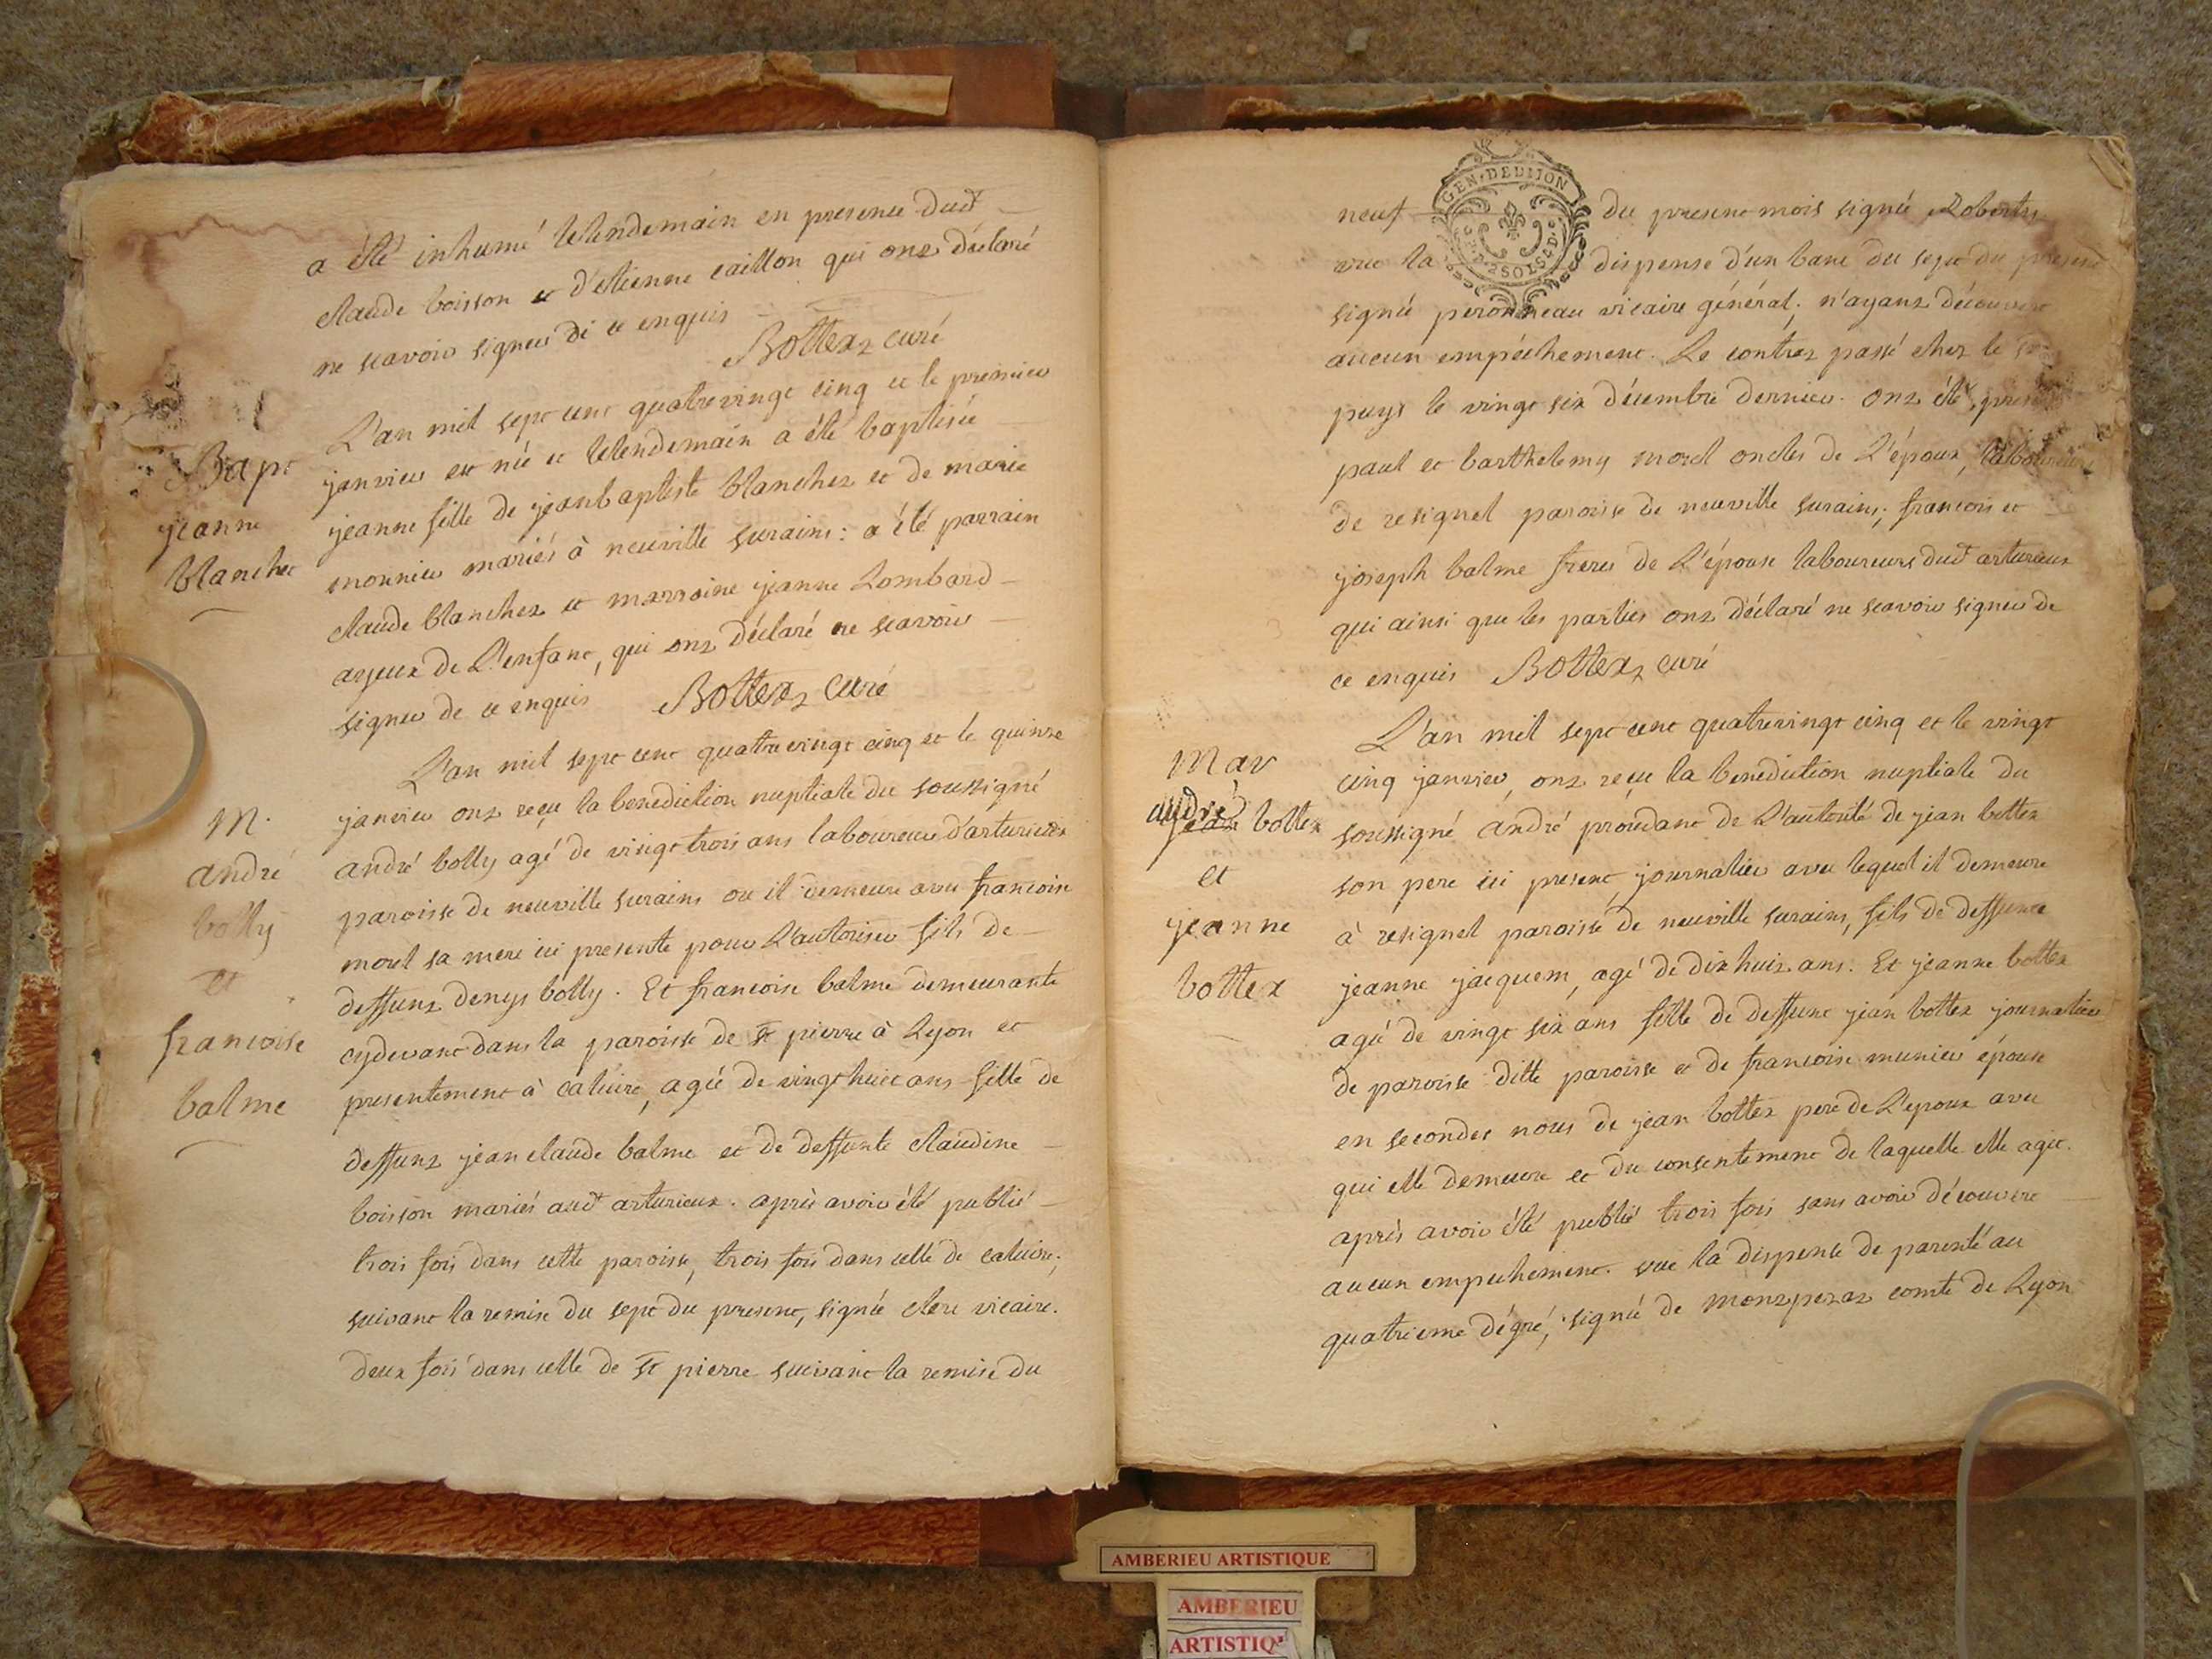 a été inhumé le lendemain en presence dud
claude boisson et d'etienne caillon qui ont déclaré
ne scavoir signer de ce enquis
Bottex curé
Bapt
jeanne
blanchet
L'an mil sept cent quatrevingt cinq et le premier
janvier est née et le lendemain a été baptisée
jeanne fille de jeanbaptiste blanchet et de marie
monnier mariés à neuville surains : a été parrain
claude blanchet et marraine jeanne Lombard
ayeux de L'enfant, qui ont déclaré ne scavoir
signer de ce enquis Bottex Curé
M.
andré
bolly
et
francoise
balme
L'an mil sept cent quatrevingt cinq et le quinze
janvier ont reçu la benediction nuptiale du soussigné
andré bolly agé de vingt trois ans laboureur d'arturieux
paroisse de neuville surains ou il demeure avec francoise
morel sa mere ici presente pour L'autoriser fils de
deffunt denys bolly. Et francoise balme demeurante
cydevant dans la paroisse de st pierre à Lyon et
presentement à caluire, agée de vingt huit ans fille de
deffunt jean claude balme et de deffunte claudine
boisson mariés aud arturieux. après avoir été publié
trois fois dans cette paroisse, trois fois dans celle de caluire,
suivant la remise du sept du present, signée clerc vicaire.
deux fois dans celle de st pierre suivant la remise du
GEN. DE DIJON
2 SOLS
neuf du present mois signée
vue la dispense d'un banc du sept du present
signée peronneau vicaire général, n'ayant découvert
aucun empéchement. Le contrat passé chez le
puys le vingt six décembre dernier. ont été presents
paul et barthelemy morel oncles de L'époux, laboureurs
de resignel paroisse de neuville surains, francois et
joseph balme freres de L'épouse laboureurs dud arturieux
qui ainsi que les parties ont déclaré ne scavoir signer de
ce enquis Bottex curé
Mar
andré
jean bottex
et
jeanne
bottex
L'an mil sept cent quatrevingt cinq et le vingt
cinq janvier, ont reçu la benediction nuptiale du
soussigné andré procédant de L'autorité de jean bottex
son pere ici present, journalier avec lequel il demeure
à résignel paroisse de neuville surains, fils de deffunte
jeanne jacquem, agé de dix huit ans. Et jeanne bottex
agée de vingt six ans fille de deffunt jean bottex journalier
de paroisse ditte paroisse et de francoise munier épouse
en secondes nous de jean bottex pere de L'epoux avec
qui elle demeure et du consentement de laquelle elle agit.
après avoir été publié trois fois sans avoir découvert
aucun empechement. vue la dispense de parenté au
quatrieme dégré, signée de montperat comte de Lyon
AMBERIEU ARTISTIQUE
AMBERIEU
ARTISTIQ